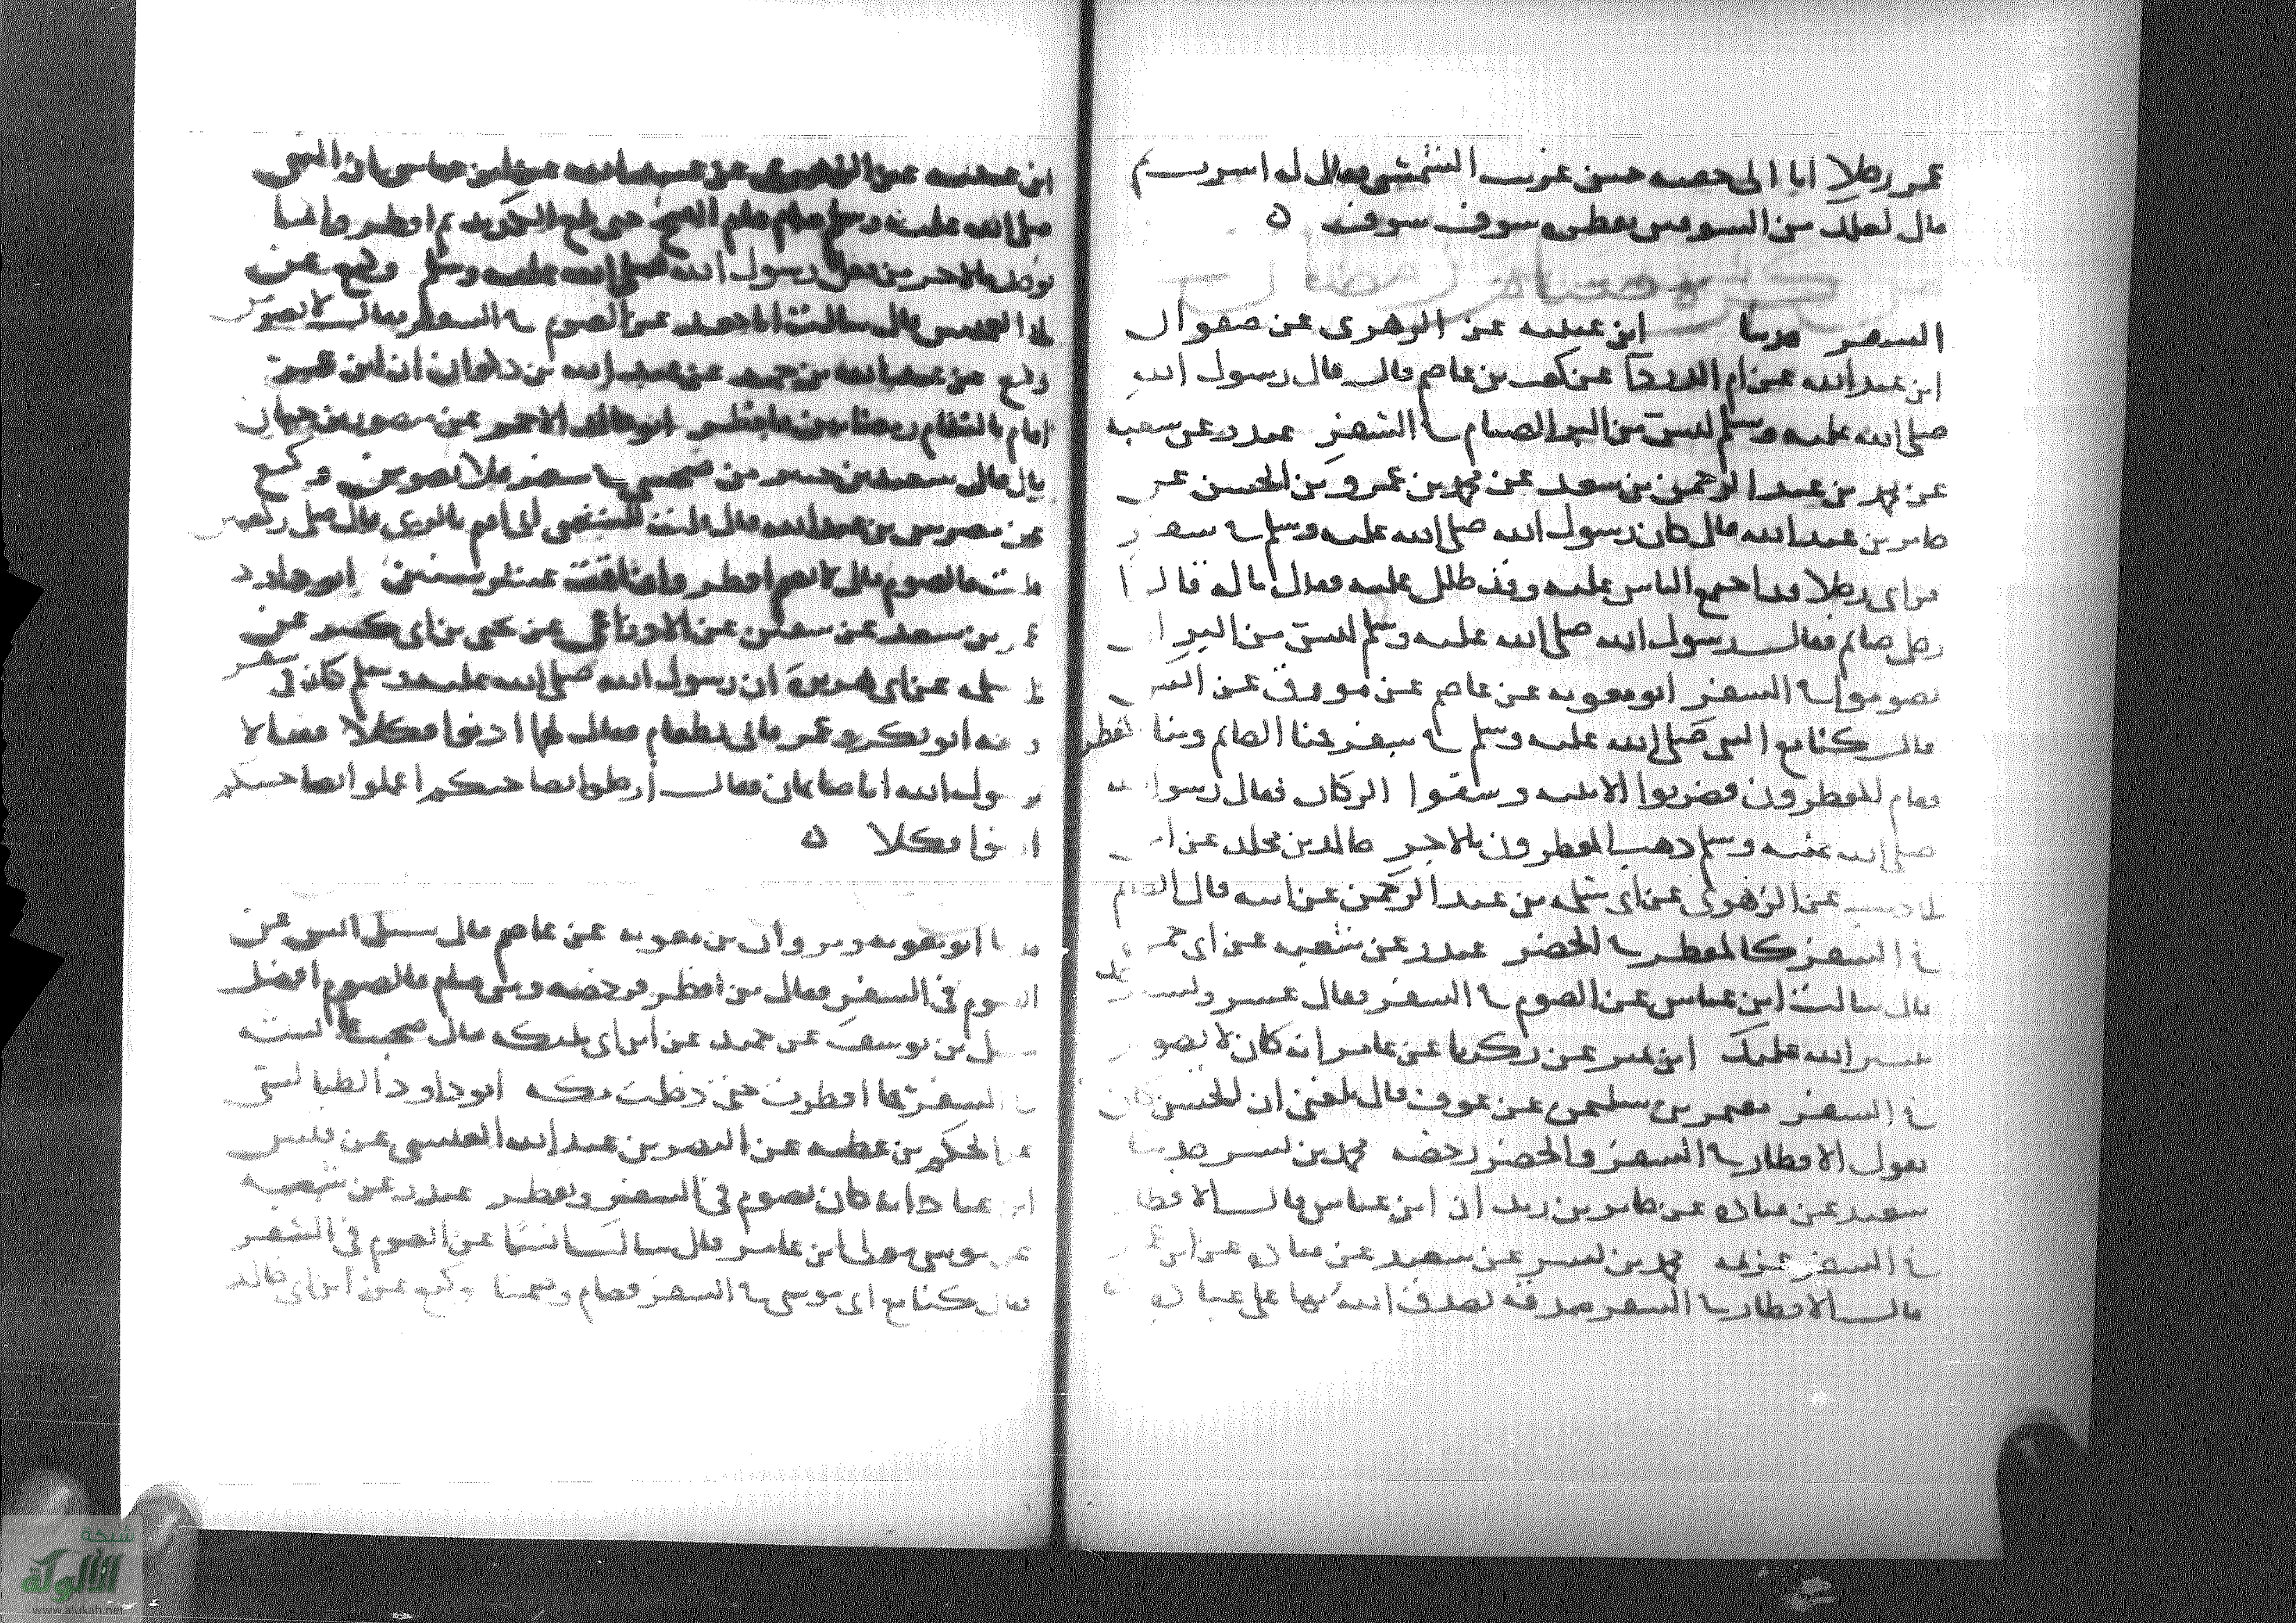 عمر رجلا انا الى حفصه حين غربت الشمس فقال له اشرب ثم
قال لعلك من المسوفين بفطره سوف سوف ه
من كره صيام رمضان في
السفر حدثنا ابن عيينه عن الزهري عن صفوان
ابن عبد الله عن ام الدردا عن كعب بن عاصم قال قال رسول الله
صلى الله عليه وسلم ليس من البر الصيام في السفر غندر عن شعبه
عن محمد بن عبد الرحمن بن سعد عن محمد بن عمرو بن الحسن عن
جابر بن عبد الله قال كان رسول الله صلى الله عليه وسلم في سفر
فراى رجلا قد اجتمع الناس عليه وقد ظلل عليه فقال ما له قالوا
رجل صايم فقال رسول الله صلى الله عليه وسلم ليس من البر ان
تصوموا في السفر ابو معويه عن عاصم عن مورق عن انس
قال كنا مع النبي صلى الله عليه وسلم في سفر فمنا الصايم ومنا المفطر
فقام المفطرون فضربوا الابنيه وسقوا الركاب فقال رسول الله
صلى الله عليه وسلم ذهب المفطرون بالاجر خالد بن مخلد عن ابن
ابي ذيب عن الزهري عن ابي سلمه بن عبد الرحمن عن ابيه قال الصايم
في السفر كالمفطر في الحضر غندر عن شعبه عن ابي جمره
قال سالت ابن عباس عن الصوم في السفر فقال عسر ويسر خذ
بيسر الله عليك ابن نمير عن زكريا عن عامر انه كان لا يصوم
في السفر معتمر بن سليمن عن عوف قال بلغني ان الحسن كان
يقول الافطار في السفر والحضر رخصه محمد بن بشر حدثنا
سعيد عن قتاده عن جابر بن زيد ان ابن عباس قال الافطار
في السفر عزمه محمد بن بشر عن سعيد عن قتاده عن ابن عمر
قال الافطار في السفر صدقه تصدق الله بها على عباده
ابن عيينه عن الزهري عن عبيد الله عن ابن عباس ان النبي
صلى الله عليه وسلم صام عام الفتح حتى بلغ الكديد ثم افطر وانما
يوخذ بالاخر من فعل رسول الله صلى الله عليه وسلم وكيع عن
قال سالت ابا جعفر عن الصوم في السفر فقال لا تصومن
وكيع عن عبد الله بن حميد عن عبد الله بن ذكوان ان ابن عمر
اقام بالشام رمضانين فافطر ابو خالد الاحمر عن منصور بن حيان
قال قال سعيد بن جبير من صحبني في سفر فلا يصومن وكيع
عن بن عبد الله قال قلت للشعبي اني اقيم بالري قال صل ركعتين
قلت فالصوم قال لا تصم افطر وان اقمت عشر سنين ابو داود
عمر بن سعد عن سفين عن الاوزاعي عن يحيى بن ابي كثير عن
ابي سلمه عن ابي هريره ان رسول الله صلى الله عليه وسلم كان في سفر
ومعه ابو بكر وعمر فاتي بطعام فقال لهما ادنوا فكلا فقالا
يا رسول الله انا صايمان فقال ارحلوا لصاحبيكم اعملوا لصاحبيكم
ادنوا فكلا ه
حدثنا ابو معويه ومروان بن معويه عن عاصم قال سيل انس عن
الصوم في السفر فقال من افطر فرخصه ومن صام فالصوم افضل
سهل بن يوسف عن حميد عن ابن ابي مليكه قال صحبت
في السفر فما افطرت حتى دخلت مكه ابو داود الطيالسي
عن الحكم بن عطيه عن النضر بن عبد الله القيسي عن قيس
ابن عباد انه كان يصوم في السفر ويفطر غندر عن شعبه
عن موسى مولى ابن عامر قال سالت انسا عن الصوم في السفر
فقال كنا مع ابي موسى في السفر فصام وصمنا وكيع عن ابن ابي خالد